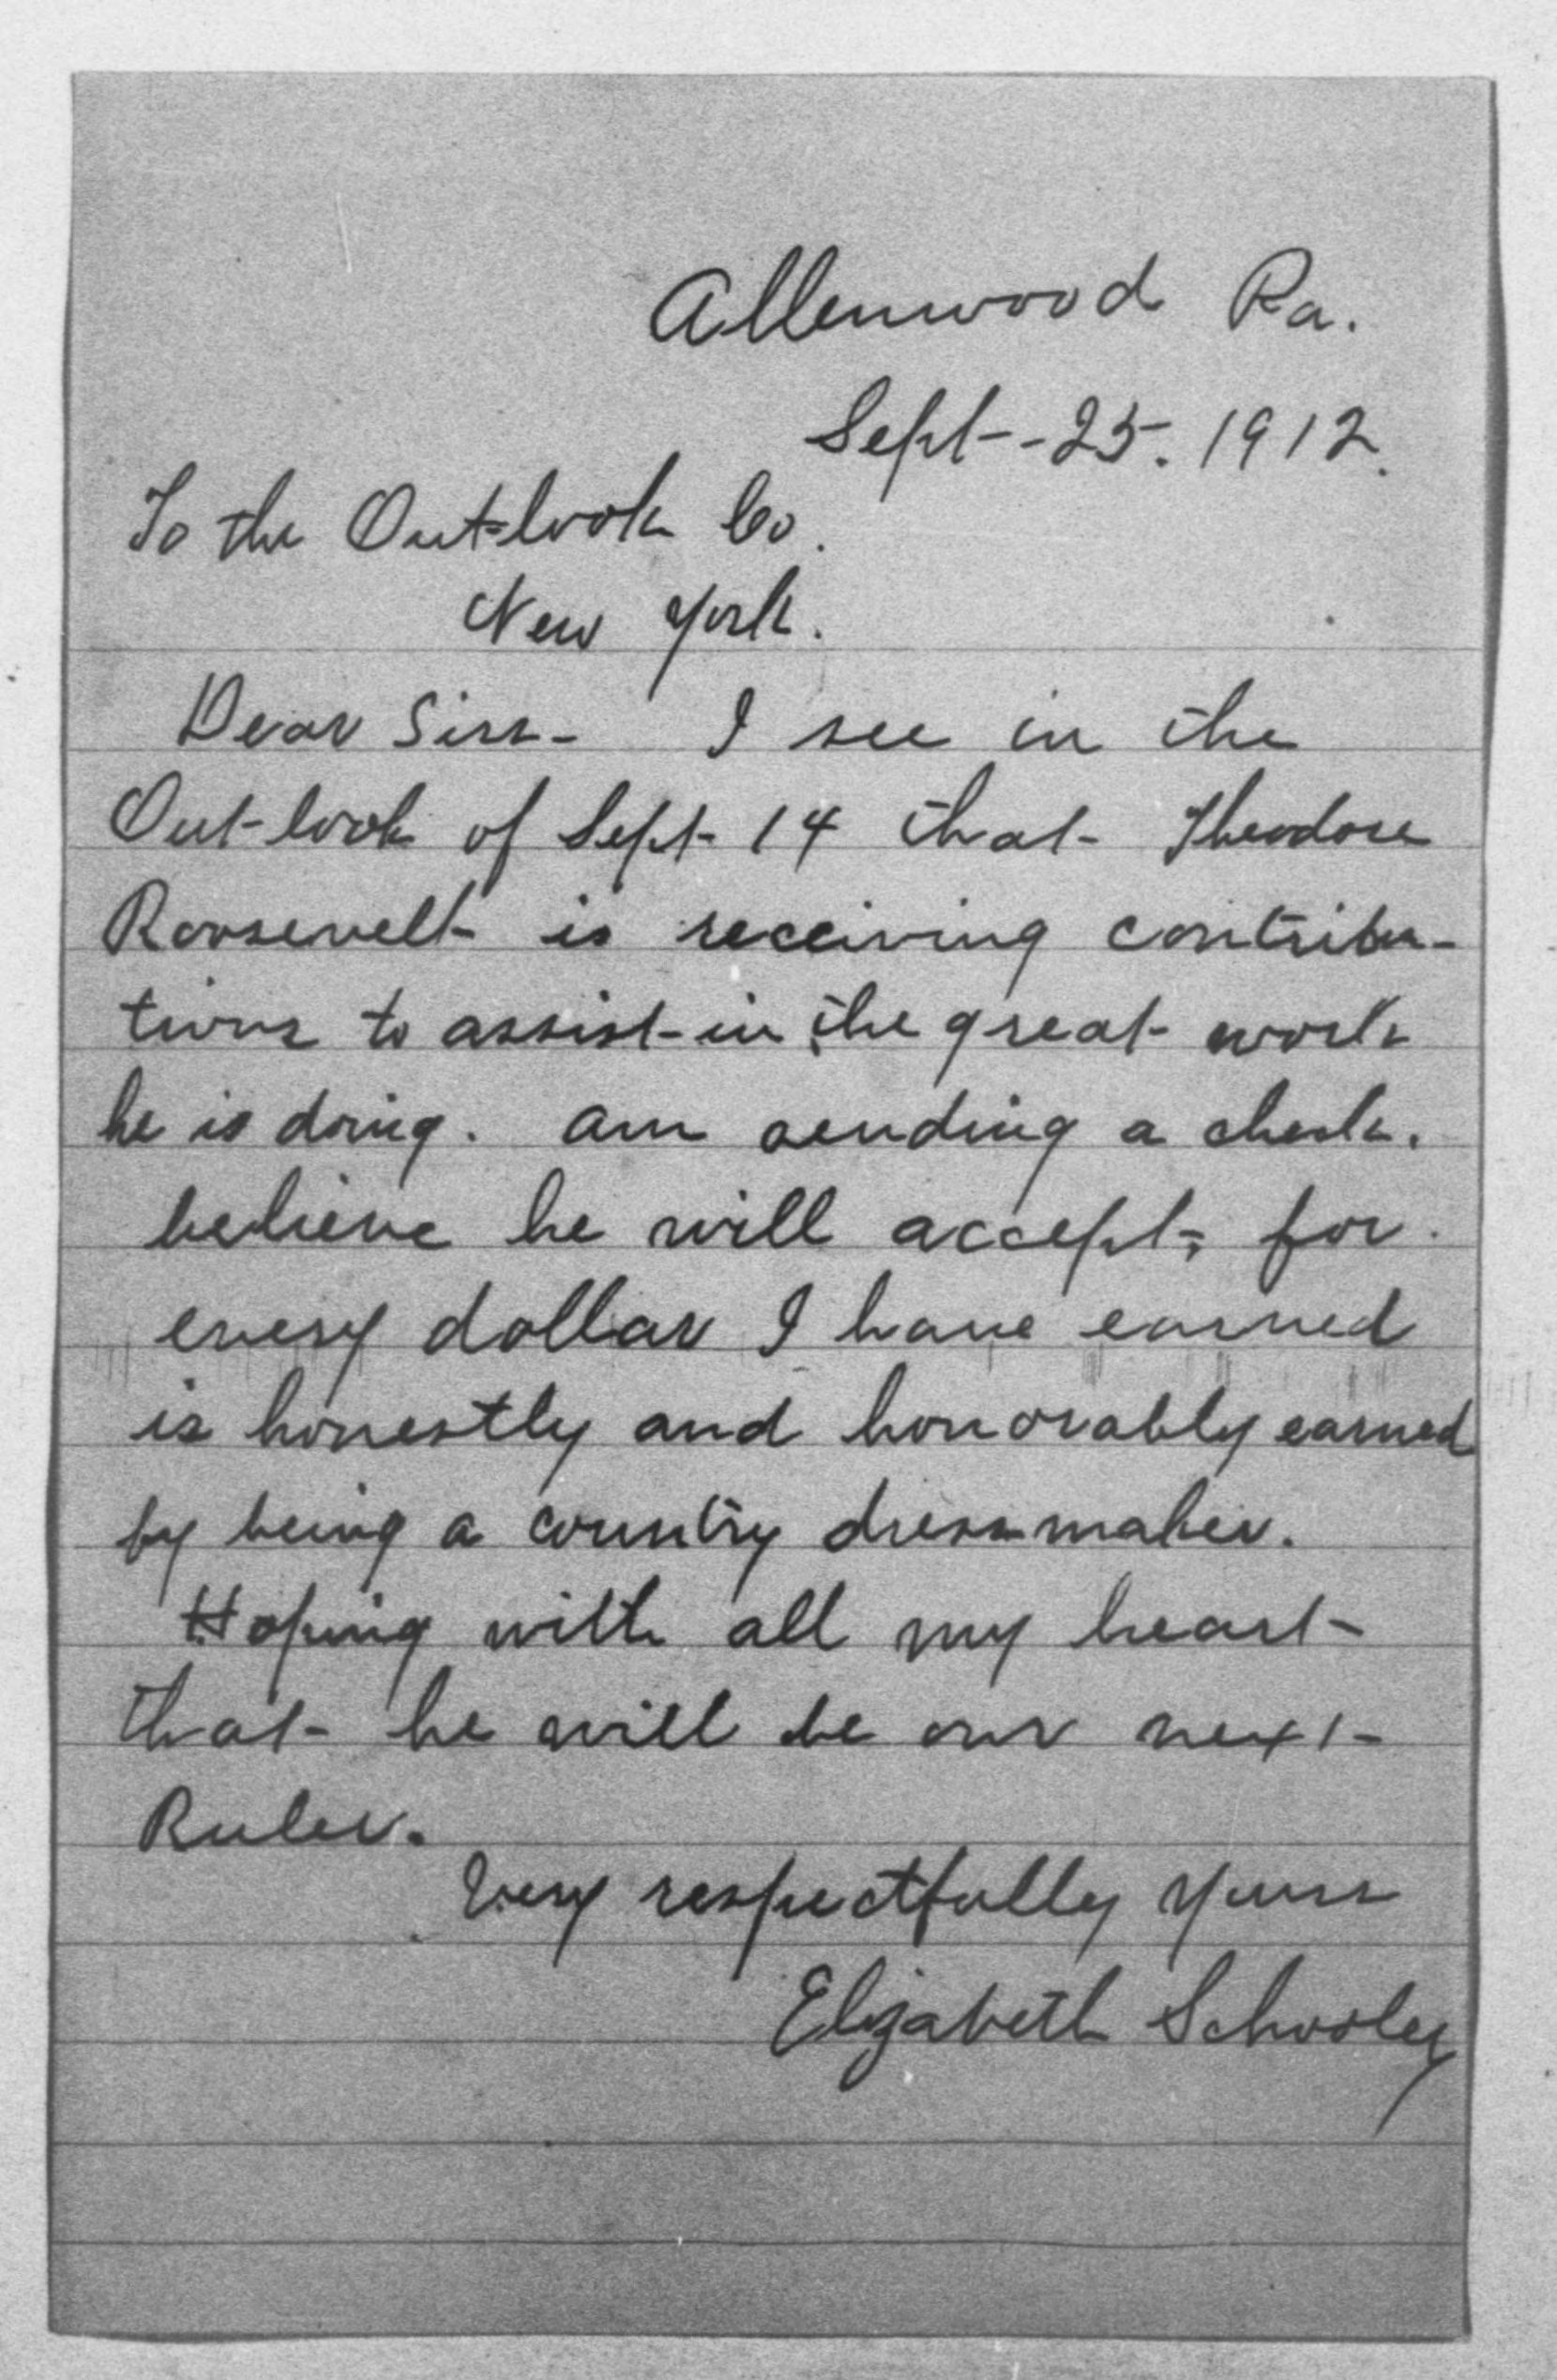 Allenwood Pa.
Sept--25. 1912.
To the Out-look Co.
New York.
Dear Sirs- I see in the
Out-look of Sept- 14 that Theodore
Roosevelt is receiving contribu-
tions to assist in the great work
he is doing. am sending a check.
believe he will accept, for
every dollar I have earned
is honestly and honorably earned
by being a country dressmaker.
Hoping with all my heart
that he will be our next
Ruler.
Very respectfully yours
Elizabeth Schooley